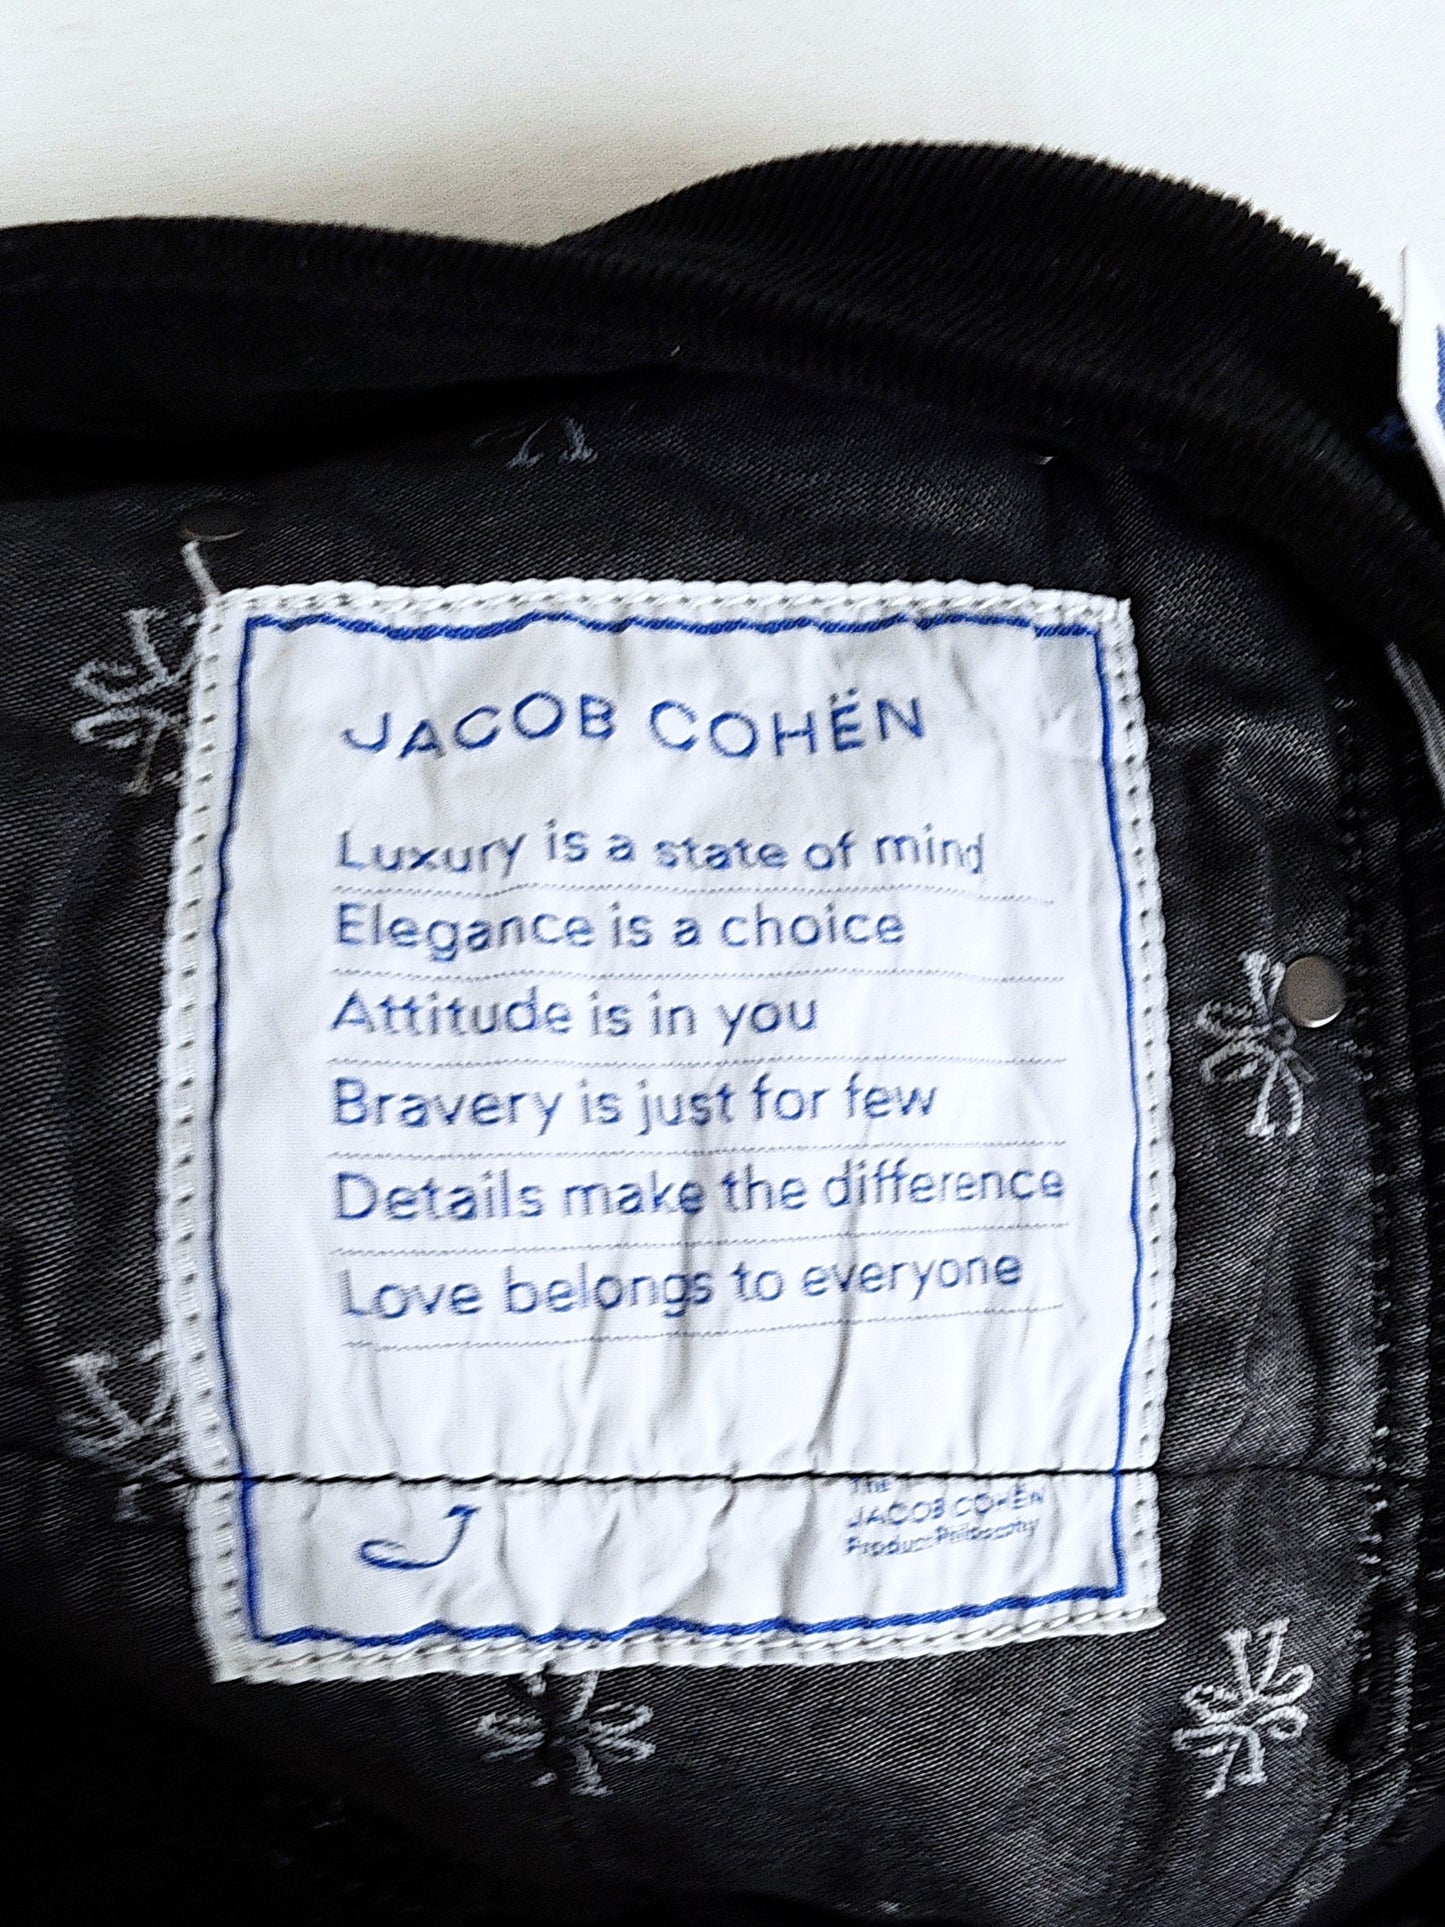 JACOB COHËN
Luxury is a state of mind
Elegance is a choice
Attitude is in you
Bravery is just for few
Details make the difference
Love belongs to everyone
J
The
JACOB COHËN
Product Philosophy